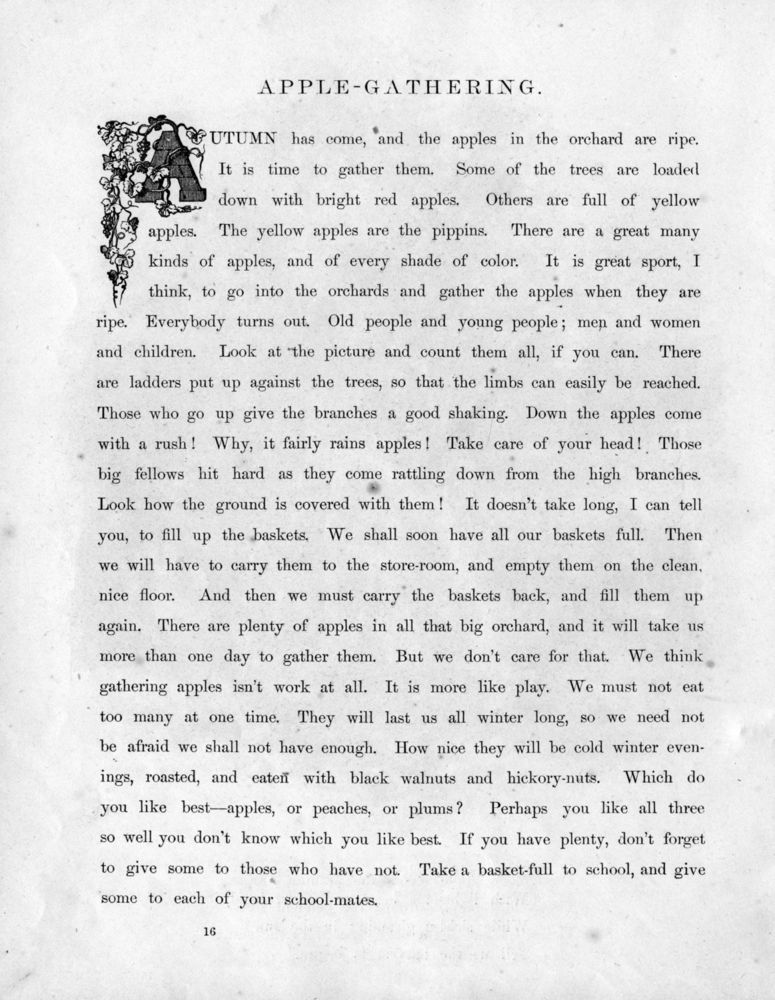 APPLE-GATHERING.
AUTUMN has come, and the apples in the orchard are ripe.
It is time to gather them. Some of the trees are loaded
down with bright red apples. Others are full of yellow
apples. The yellow apples are the pippins. There are a great many
kinds of apples, and of every shade of color. It is great sport, I
think, to go into the orchards and gather the apples when they are
ripe. Everybody turns out. Old people and young people; men and women
and children. Look at the picture and count them all, if you can. There
are ladders put up against the trees, so that the limbs can easily be reached.
Those who go up give the branches a good shaking. Down the apples come
with a rush! Why, it fairly rains apples! Take care of your head! Those
big fellows hit hard as they come rattling down from the high branches.
Look how the ground is covered with them! It doesn't take long, I can tell
you, to fill up the baskets. We shall soon have all our baskets full. Then
we will have to carry them to the store-room, and empty them on the clean,
nice floor. And then we must carry the baskets back, and fill them up
again. There are plenty of apples in all that big orchard, and it will take us
more than one day to gather them. But we don't care for that. We think
gathering apples isn't work at all. It is more like play. We must not eat
too many at one time. They will last us all winter long, so we need not
be afraid we shall not have enough. How nice they will be cold winter even-
ings, roasted, and eaten with black walnuts and hickory-nuts. Which do
you like best—apples, or peaches, or plums? Perhaps you like all three
so well you don't know which you like best. If you have plenty, don't forget
to give some to those who have not. Take a basket-full to school, and give
some to each of your school-mates.
16